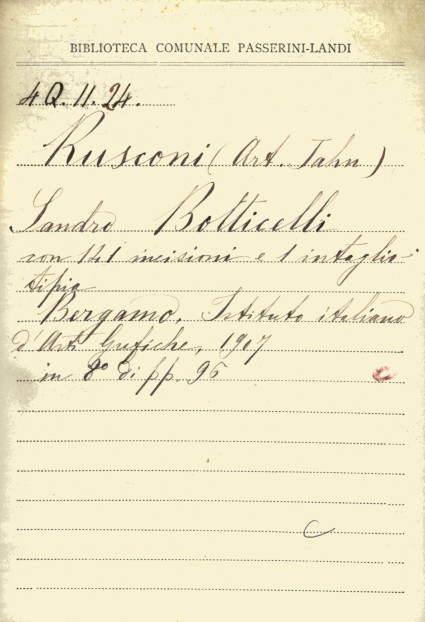 BIBLIOTECA COMUNALE PASSERINI-LANDI
4Q.11.24.
Rusconi (Art. Jahn)
Sandro Botticelli
con 141 incisioni e 1 intaglio-
tipia
Bergamo, Istituto italiano
d'Arti Grafiche, 1907
in 8º di pp. 96